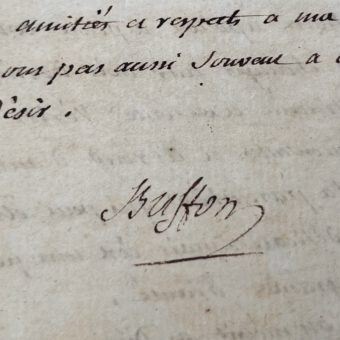 amitiés et respects a ma
vous pas aussi Souvent a
désir.
Buffon